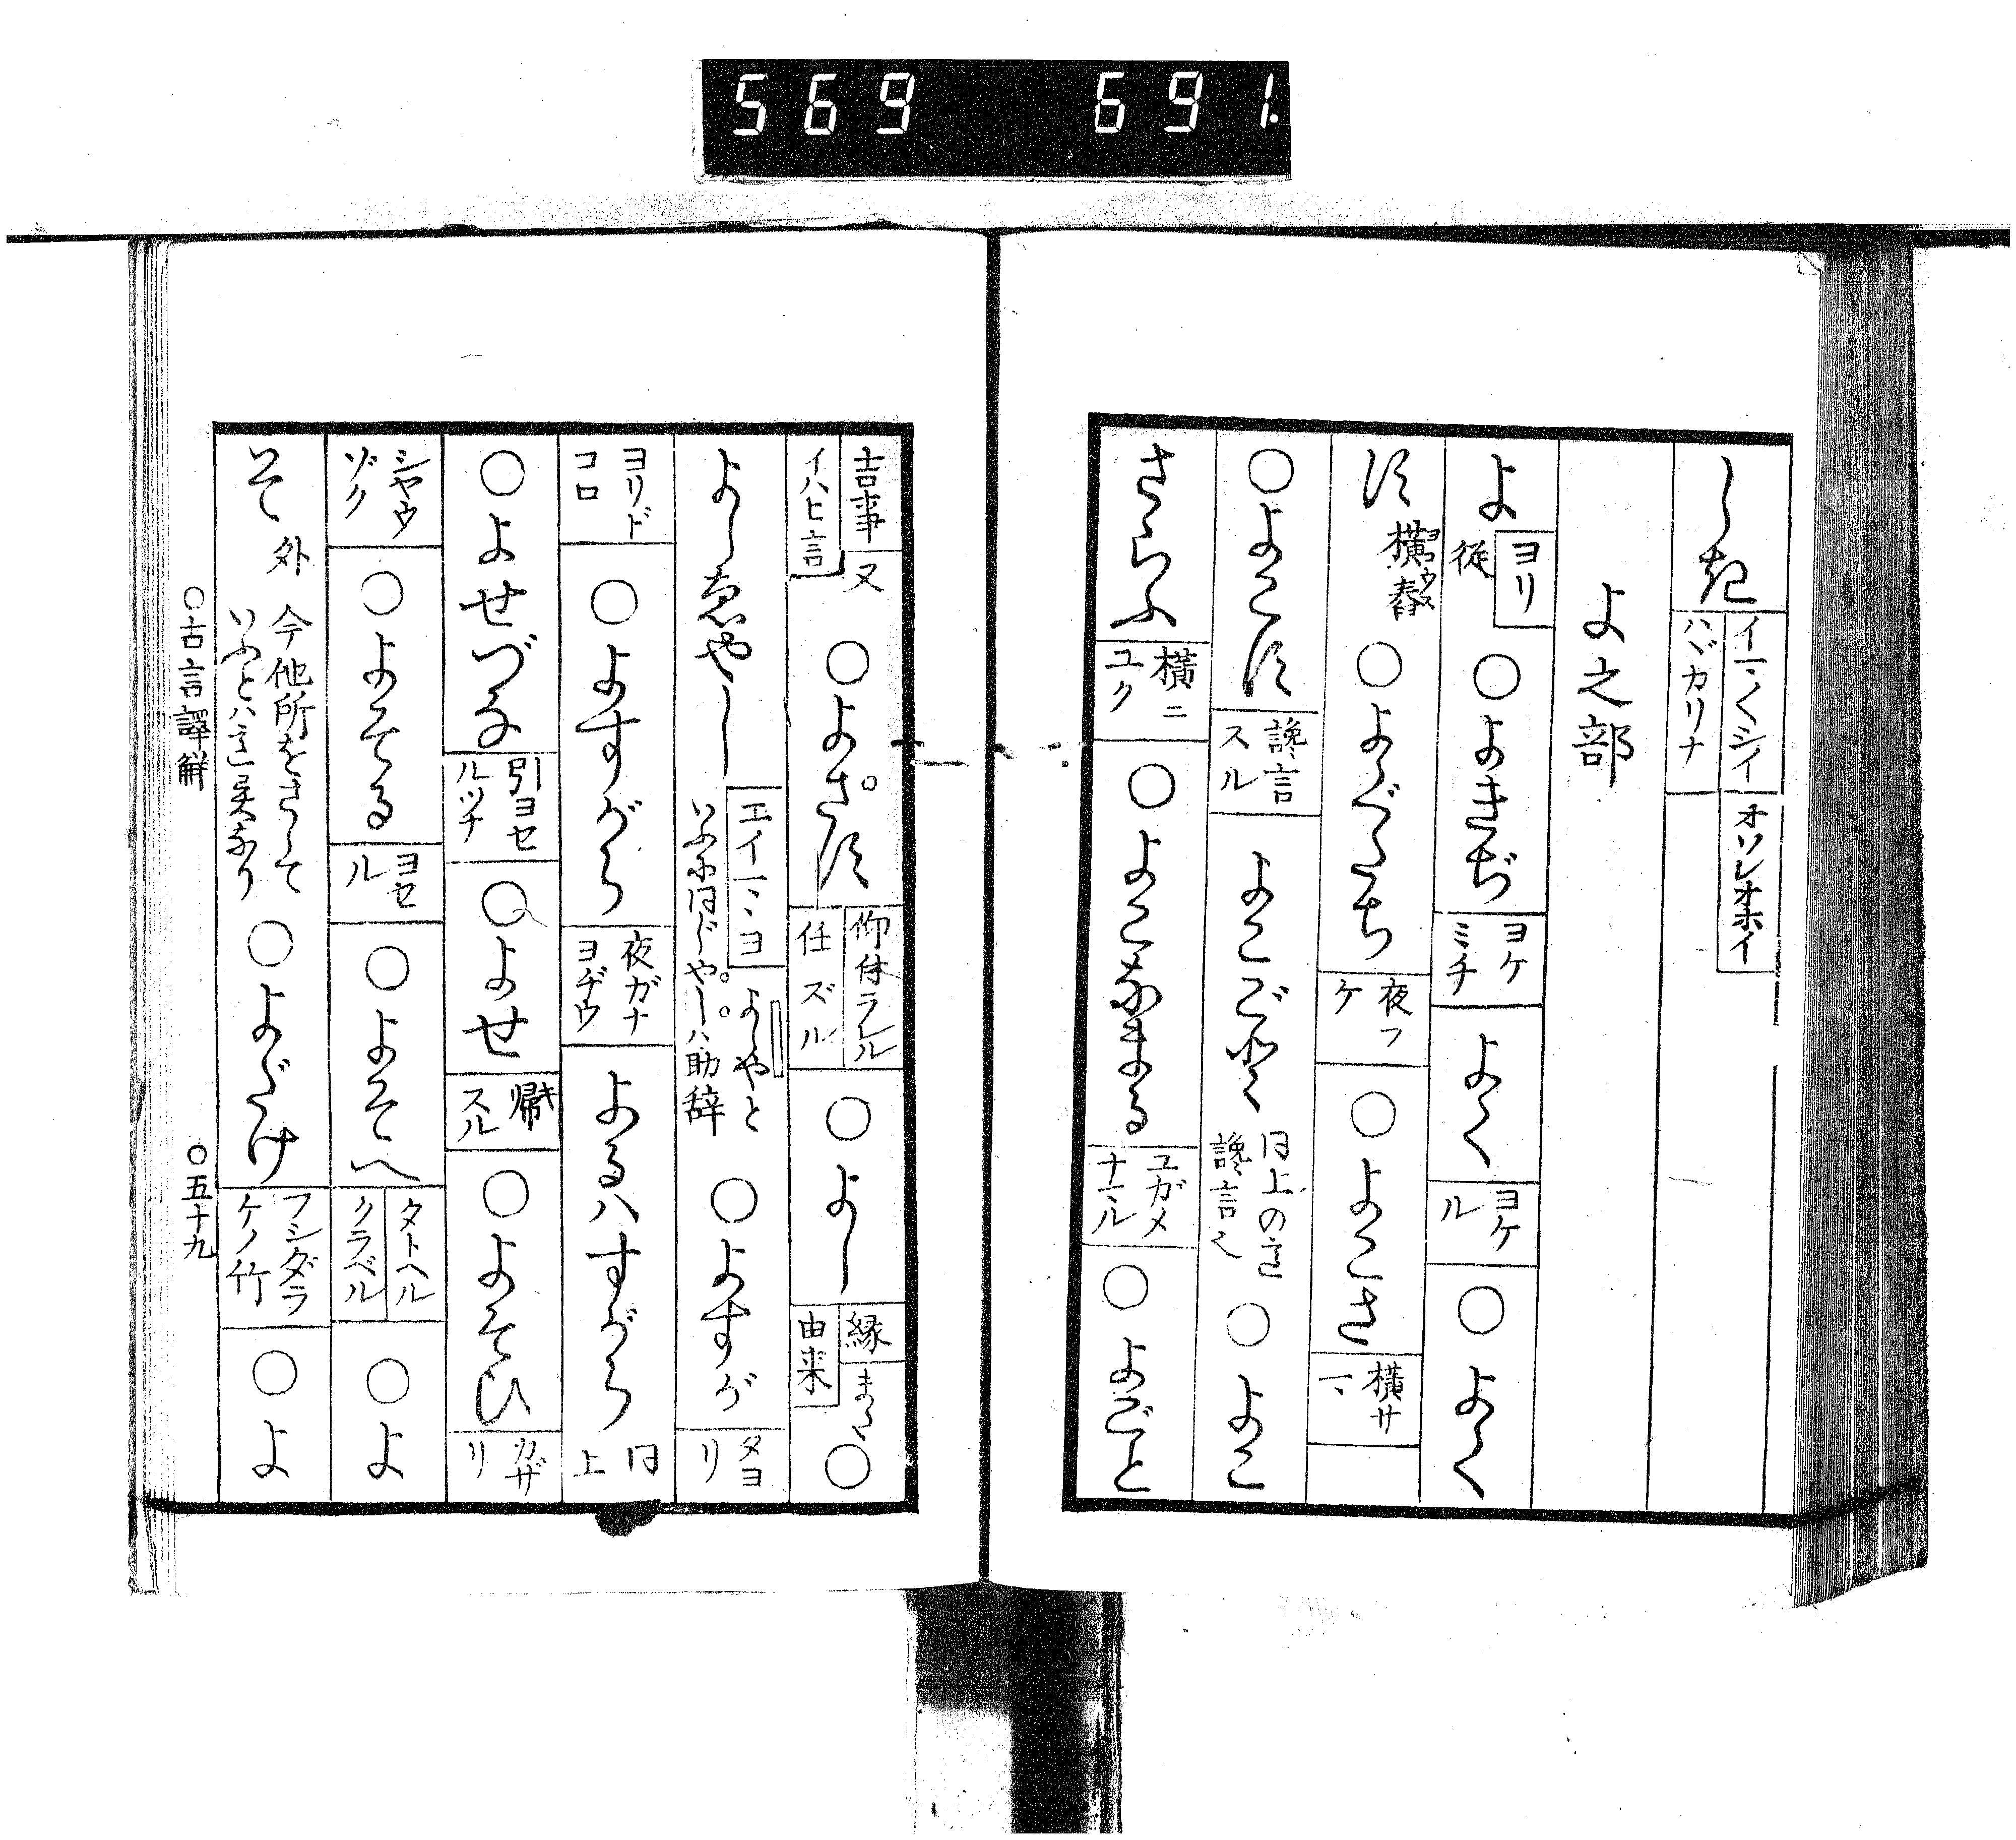 569 691.
しき イマ〱シイ ハヾカリナ オソレオホイ
よ之部
よ ヨリ 従 ○よきぢ ヨケミチ よく ヨケル ○よく
す 横舂 ○よぐたち 夜フケ ○よこさ 横サマ
○よこす 讒言スル よこごと 同上の意 讒言也 ○よこ
さらふ 横ニユク ○よこなまる ユガメナマル ○よごと
吉事 又 イハヒ言 ○よさす 仰付ラルル 任ズル ○よし 縁 また 由来 ○
よしゑやし エイマヽヨ よしやと いふに同じやしハ助辞 ○よすが タヨリ
ヨリドコロ ○よすがら 夜ガナヨヂウ よるハすがら 同上
○よせづな 引ヨセルツナ ○よせ 帰スル ○よそひ カザリ
シヤウゾク ○よそる ヨセル ○よそへ タトヘル クラベル ○よ
そ 外 今他所をさして いふとハ意異なり ○よだけ フシダラケノ竹 ○よ
○古言譯解 ○五十九